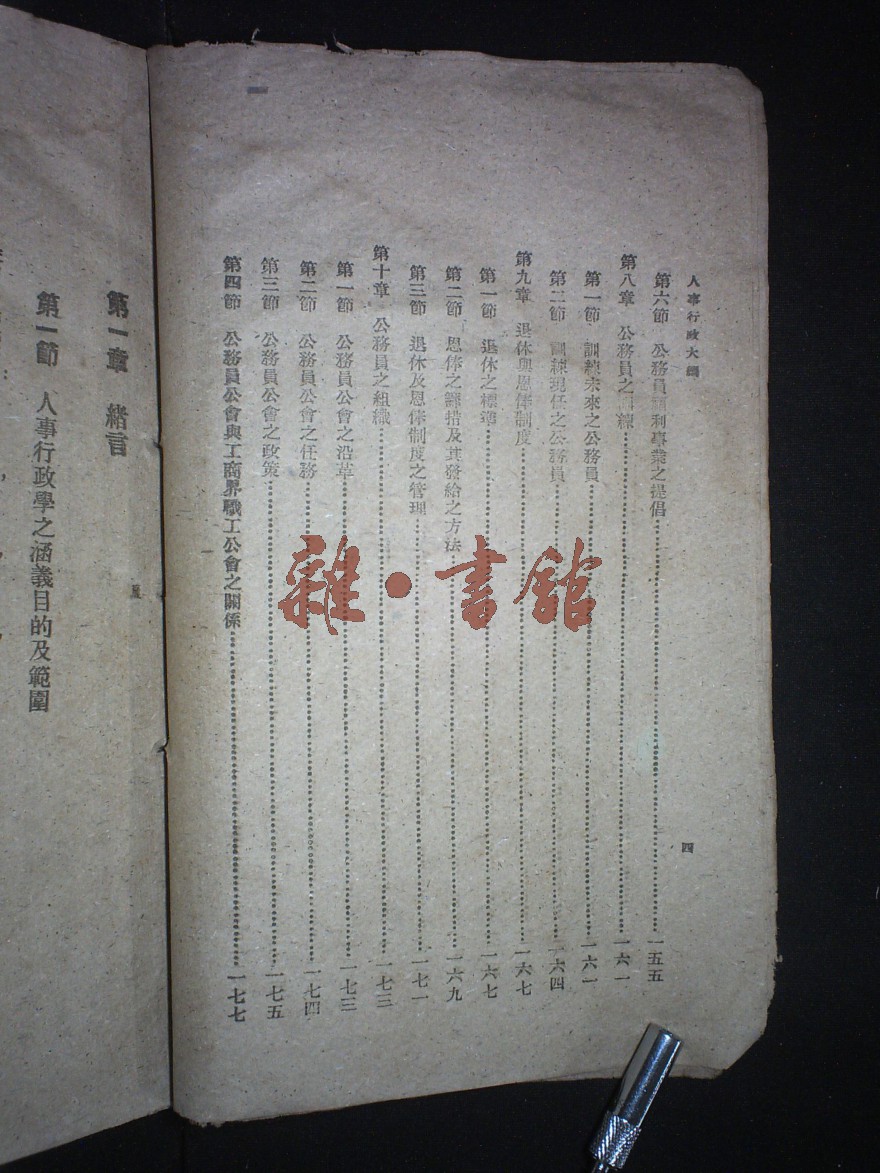 人事行政大綱
四
第六節 公務員福利事業之提倡 一五五
第八章 公務員之訓練 一六一
第一節 訓練未來之公務員 一六一
第二節 訓練現任之公務員 一六四
第九章 退休與恩俸制度 一六七
第一節 退休之標準 一六七
第二節 恩俸之籌措及其發給之方法 一六九
第三節 退休及恩俸制度之管理 一七一
第十章 公務員之組織 一七三
第一節 公務員公會之沿革 一七三
第二節 公務員公會之任務 一七四
第三節 公務員公會之政策 一七五
第四節 公務員公會與工商界職工公會之關係 一七七
第一章 緒言
第一節 人事行政學之涵義目的及範圍
雜·書館